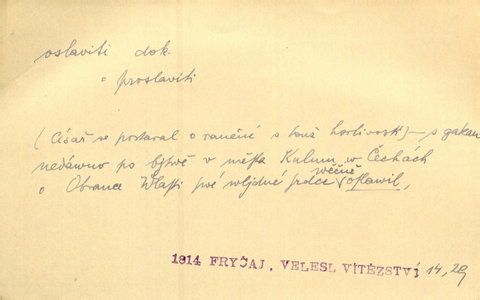 oslaviti dok.
proslaviti
(Císař se postaral o raněné s touž horlivostí) – s gakau
nedáwno po bjtwě v města Kulmu w Čechách
Obrance Wlasti swé wljdné srdce wěčně oslawil,
1814 FRYČAJ, VELESL VÍTĚZSTVÍ 14,29